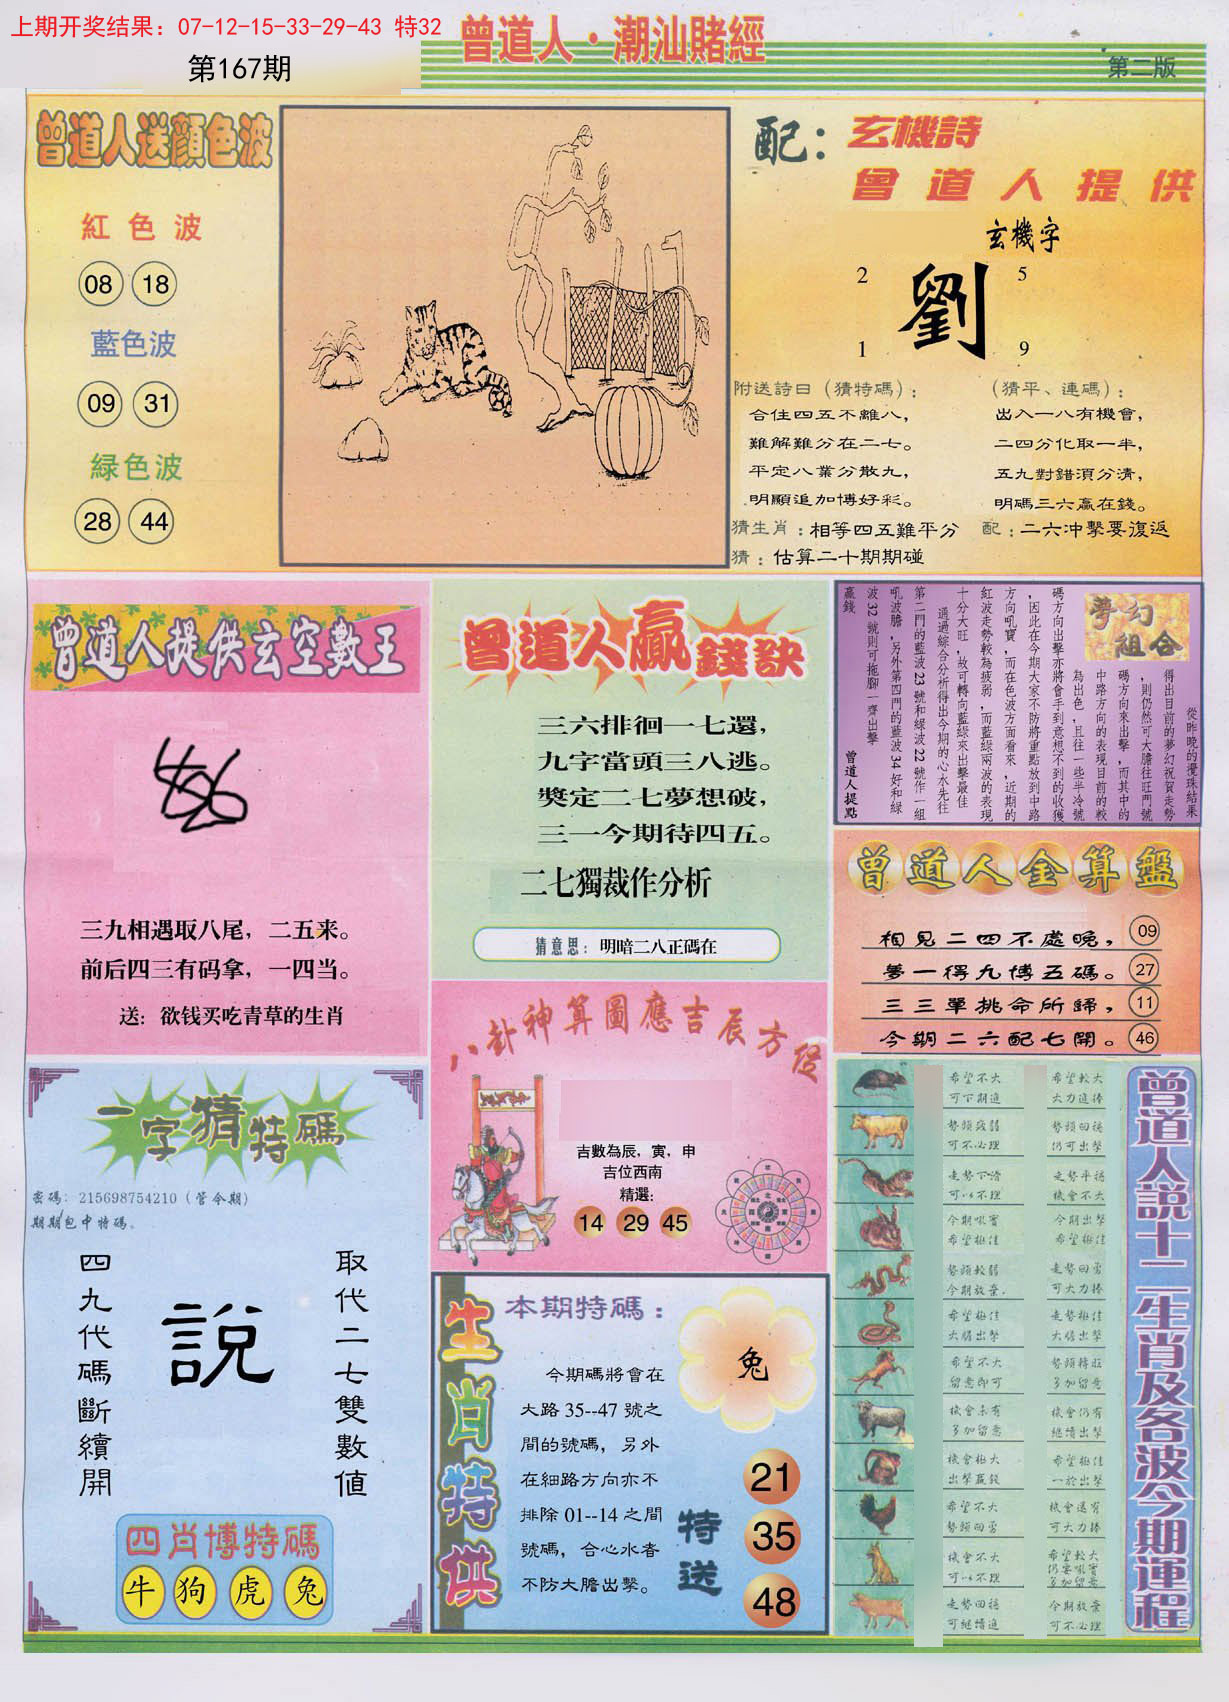 上期开奖结果：07-12-15-33-29-43 特32
第167期
曾道人·潮汕賭經
第二版
曾道人送顔色波
紅色波
08 18
藍色波
09 31
緑色波
28 44
配：玄機詩
曾道人提供
玄機字
2 5
劉
1 9
附送詩曰（猜特碼）：
合住四五不離八，
難解難分在二七。
平定八業分散九，
明顯追加博好彩。
（猜平、連碼）：
出入一八有機會，
二四分化取一半，
五九對錯須分清，
明碼三六贏在錢。
猜生肖：相等四五難平分
配：二六冲擊要復返
猜：估算二十期期碰
曾道人提供玄空數王
三九相遇取八尾，二五来。
前后四三有码拿，一四当。
送：欲钱买吃青草的生肖
曾道人贏錢訣
三六排徊一七還，
九字當頭三八逃。
獎定二七夢想破，
三一今期待四五。
二七獨裁作分析
猜意思：明暗二八正碼在
夢幻組合
從昨晚的攪珠結果
得出目前的夢幻祝賀走勢
，則仍然可大膽往旺門號
碼方向來出擊，而其中的
中路方向的表現目前的較
為出色，且往一些半冷號
碼方向出擊亦將會手到意想不到的收獲
，因此在今期大家不防將重點放到中路
方向吼寶，而在色波方面看來，近期的
紅波走勢較為疲弱，而藍綠兩波的表現
十分大旺，故可轉向藍綠來出擊最佳
通過綜合分析得出今期的心水先往
第二門的藍波23號和綠波22號作一組
吼波膽，另外第四門的藍波34好和綠
波32號則可拖腳一齊出擊
贏錢
曾道人提點
曾道人金算盤
相見二四不處晚， 09
夢一得九博五碼。 27
三三單挑命所歸， 11
今期二六配七開。 46
八卦神算圖應吉辰方位
吉數為辰，寅，申
吉位西南
精選：
14 29 45
一字猜特碼
密碼：215698754210（管今期）
期期包中特碼。
取代二七雙數值
說
四九代碼斷續開
四肖博特碼
牛 狗 虎 兔
生肖特供
本期特碼：
兔
今期碼將會在
大路35--47號之
間的號碼，另外
在細路方向亦不
排除01--14之間
號碼，合心水者
不防大膽出擊。
特送
21
35
48
曾道人説十二生肖及各波今期運程
希望不大 希望較大
可下期進 大力追捧
勢頭疲弱 勢頭回穩
可不必理 仍可出擊
走勢下滑 走勢平穩
可以不理 機會不大
今期吼實 今期出擊
希望極佳 希望極佳
勢頭較弱 走勢回勇
今期放棄. 可大力捧
希望極佳 走勢極佳
大膽出擊 大膽出擊
希望不大 勢頭轉旺
留意即可 多加留意
機會未有 機會仍有
多加留意 繼續出擊
機會極大 希望極佳
出擊贏錢 一於出擊
希望不大 機會還有
勢頭回勇 可大力捧
機會不大 希望較大
可以不理 仍要吼實
多加留意
走勢回穩 今期放棄
可繼續進 可不必理